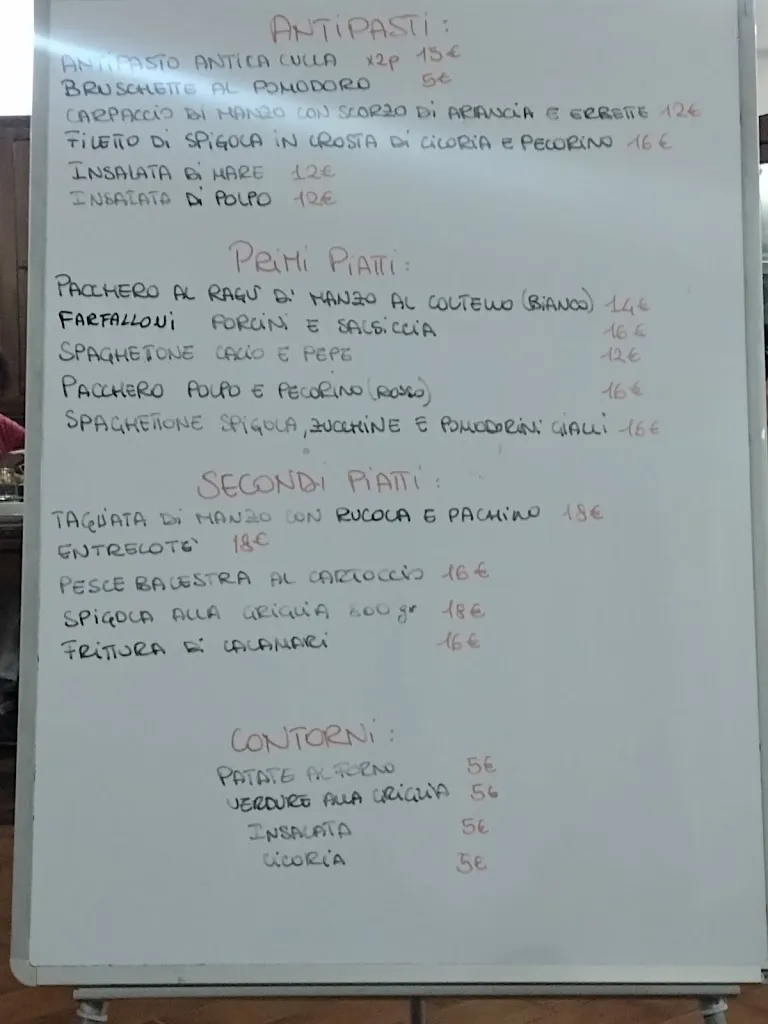 ANTIPASTI:
ANTIPASTO ANTICA CULLA x2p 15€
BRUSCHETTE AL POMODORO 5€
CARPACCIO DI MANZO CON SCORZO DI ARANCIA E ERBETTE 12€
FILETTO DI SPIGOLA IN CROSTA DI CICORIA E PECORINO 16€
INSALATA DI MARE 12€
INSALATA DI POLPO 12€
PRIMI PIATTI:
PACCHERO AL RAGÙ DI MANZO AL COLTELLO (BIANCO) 14€
FARFALLONI PORCINI E SALSICCIA 16€
SPAGHETONE CACIO E PEPE 12€
PACCHERO POLPO E PECORINO (ROSSO) 16€
SPAGHETTONE SPIGOLA, ZUCCHINE E POMODORINI GIALLI 16€
SECONDI PIATTI:
TAGLIATA DI MANZO CON RUCOLA E PACHINO 18€
ENTRECOTE' 18€
PESCE BALESTRA AL CARTOCCIO 16€
SPIGOLA ALLA GRIGLIA gr 18€
FRITTURA DI CALAMARI 16€
CONTORNI:
PATATE AL FORNO 5€
VERDURE ALLA GRIGLIA 5€
INSALATA 5€
CICORIA 5€